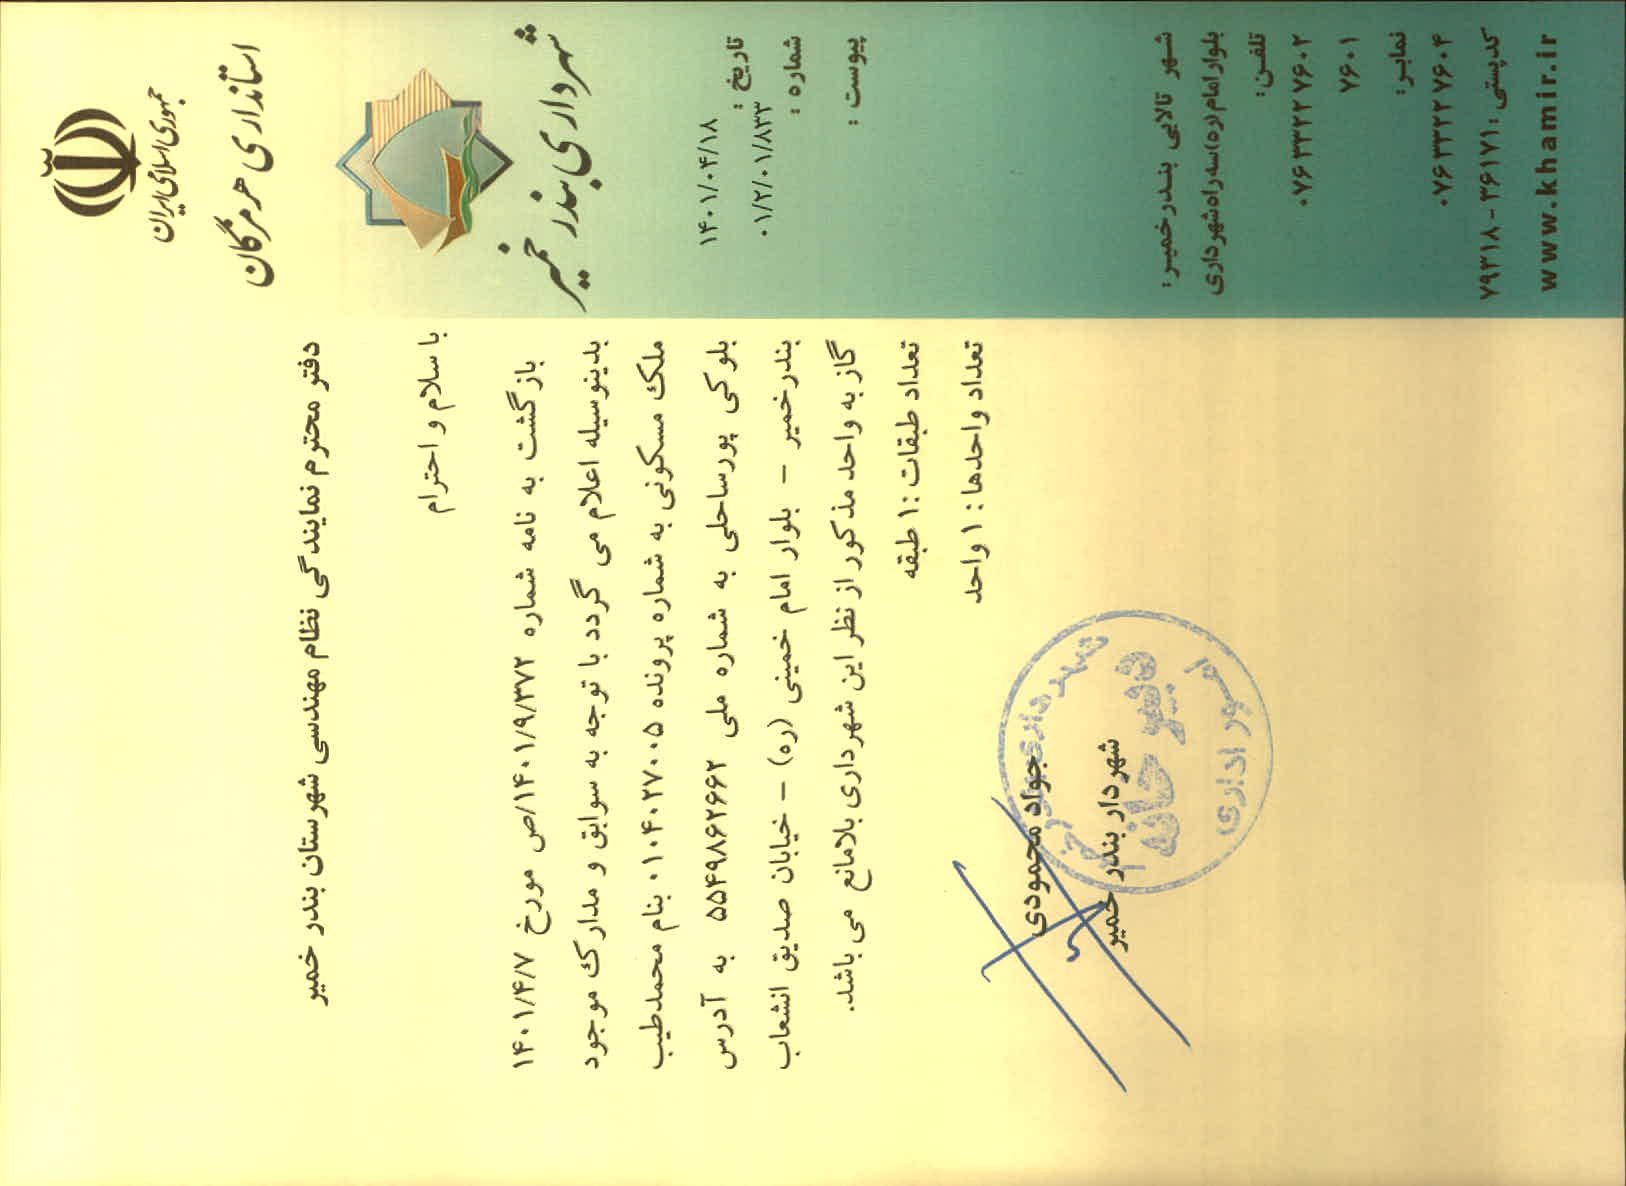 جمهوری اسلامی ایران
استانداری هرمزگان
شهرداری بندر خمیر
تاریخ :
۱۴۰۱/۰۴/۱۸
شماره :
۰۱/۲/۰۱/۸۳۳
پیوست :
شهر تالابی بندرخمیر:
بلوار امام(ره)سه راه شهرداری
تلفن:
۰۷۶۳۳۲۲۷۶۰۲
۷۶۰۱
نمابر:
۰۷۶۳۳۲۲۷۶۰۴
کدپستی: ۳۶۱۷۱ - ۷۹۳۱۸
www.khamir.ir
دفتر محترم نمایندگی نظام مهندسی شهرستان بندر خمیر
با سلام و احترام
بازگشت به نامه شماره ۱۴۰۱/۹/۳۷۲/ص مورخ ۱۴۰۱/۴/۷
بدینوسیله اعلام می گردد با توجه به سوابق و مدارک موجود
ملک مسکونی به شماره پرونده ۰۱۰۴۰۲۷۰۰۵ بنام محمدطیب
بلوکی پورساحلی به شماره ملی ۵۵۴۹۸۶۲۶۶۲ به آدرس
بندرخمیر - بلوار امام خمینی (ره) - خیابان صدیق انشعاب
گاز به واحد مذکور از نظر این شهرداری بلامانع می باشد.
تعداد طبقات :۱ طبقه
تعداد واحدها : ۱ واحد
جواد محمودی
شهردار بندر خمیر
شهرداری بندر خمیر
دبیر خانه
امور اداری